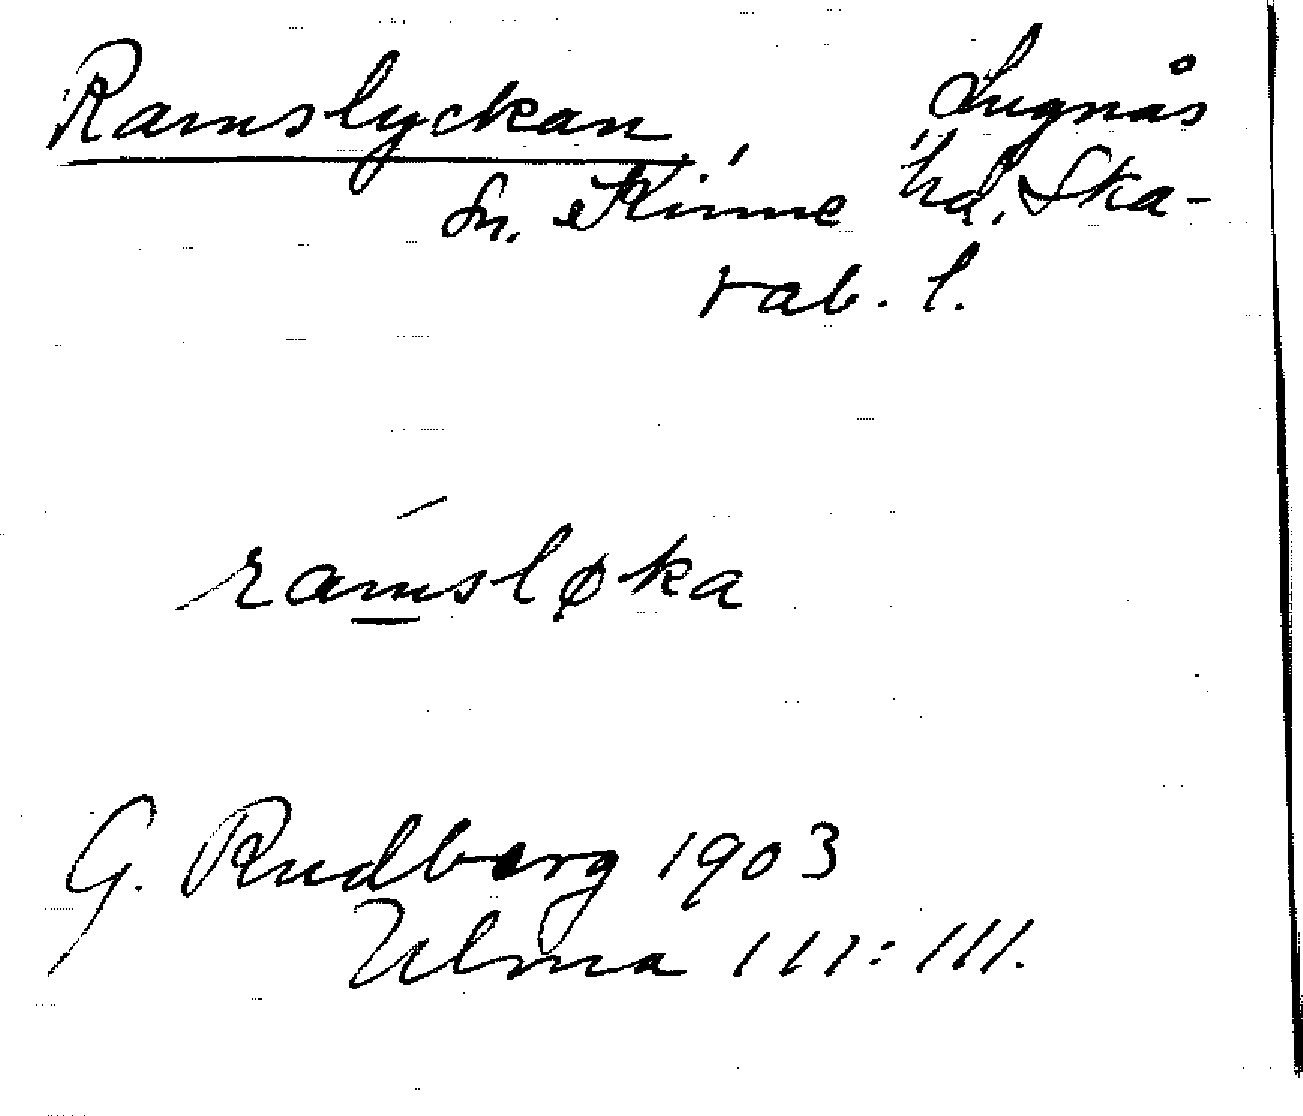 Ramslyckan Lugnås
sn. Kinne hd. Ska-
rab. l.
ramsløka
G. Rudberg 1903
Ulma 111:111.